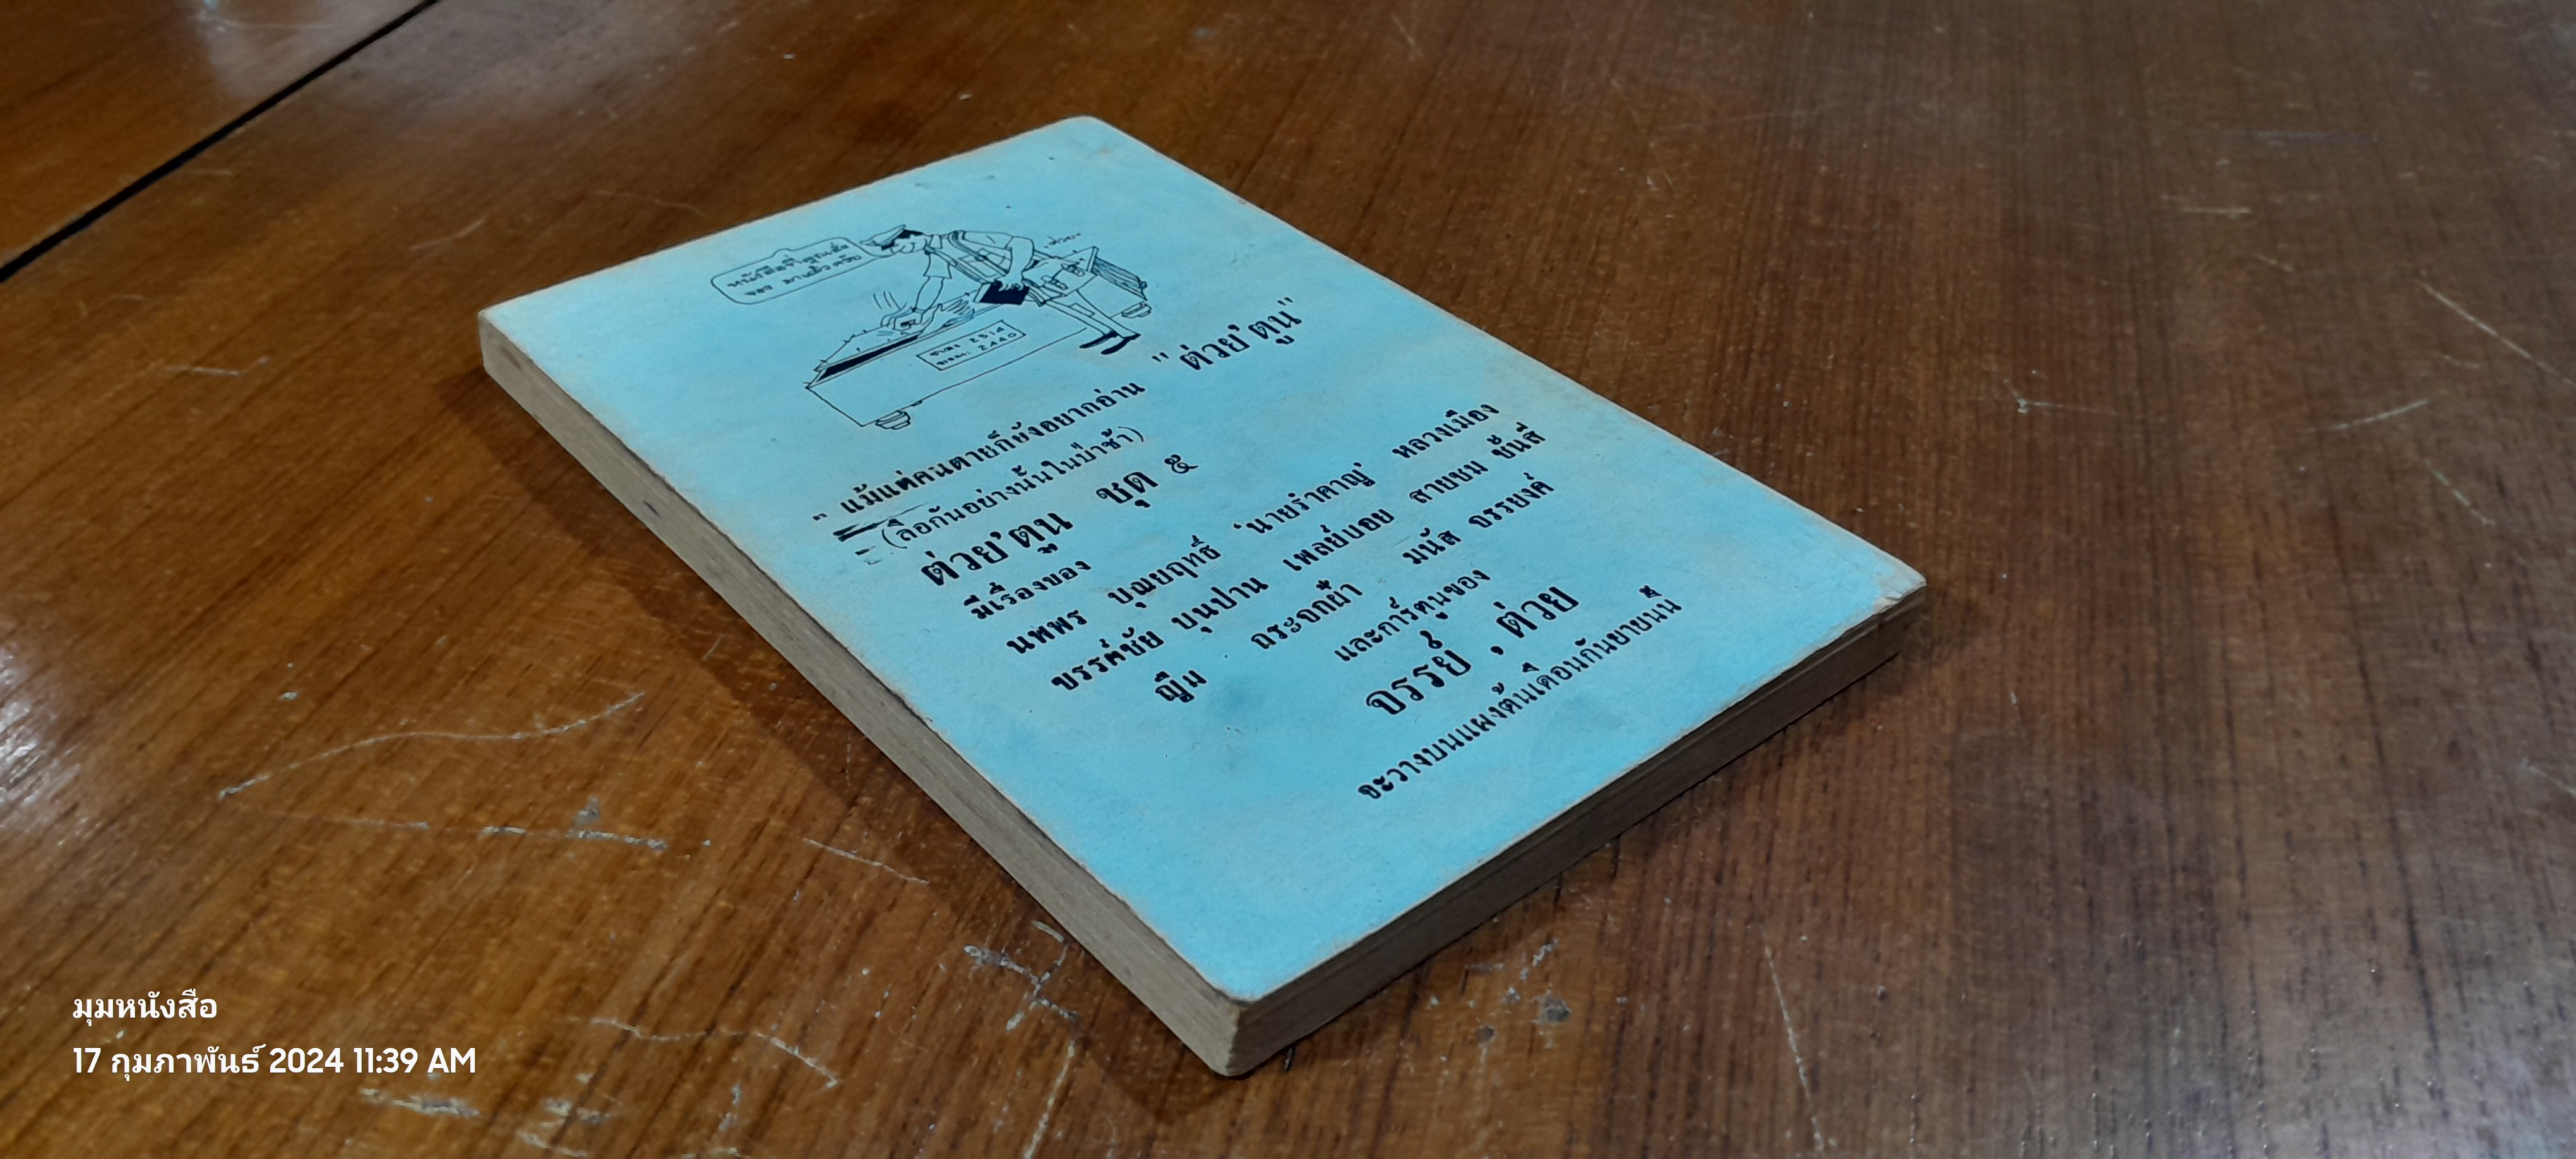 หนังสือที่คุณสั่ง
จอง มาแล้วครับ
ต่วย
ชาตะ 2514
มรณะ 2440
" แม้แต่คนตายก็ยังอยากอ่าน "ต่วย'ตูน"
(ลือกันอย่างนั้นในป่าช้า)
ต่วย'ตูน ชุด ๕
มีเรื่องของ
นพพร บุณยฤทธิ์ 'นายรำคาญ' หลวงเมือง
ขรรค์ชัย บุนปาน เพลย์บอย สายชม ชั้นสี่
ญิ๋ม กระจกฝ้า มนัส จรรยงค์
และการ์ตูนของ
จรรย์ , ต่วย
จะวางบนแผงต้นเดือนกันยายนนี้
มุมหนังสือ
17 กุมภาพันธ์ 2024 11:39 AM